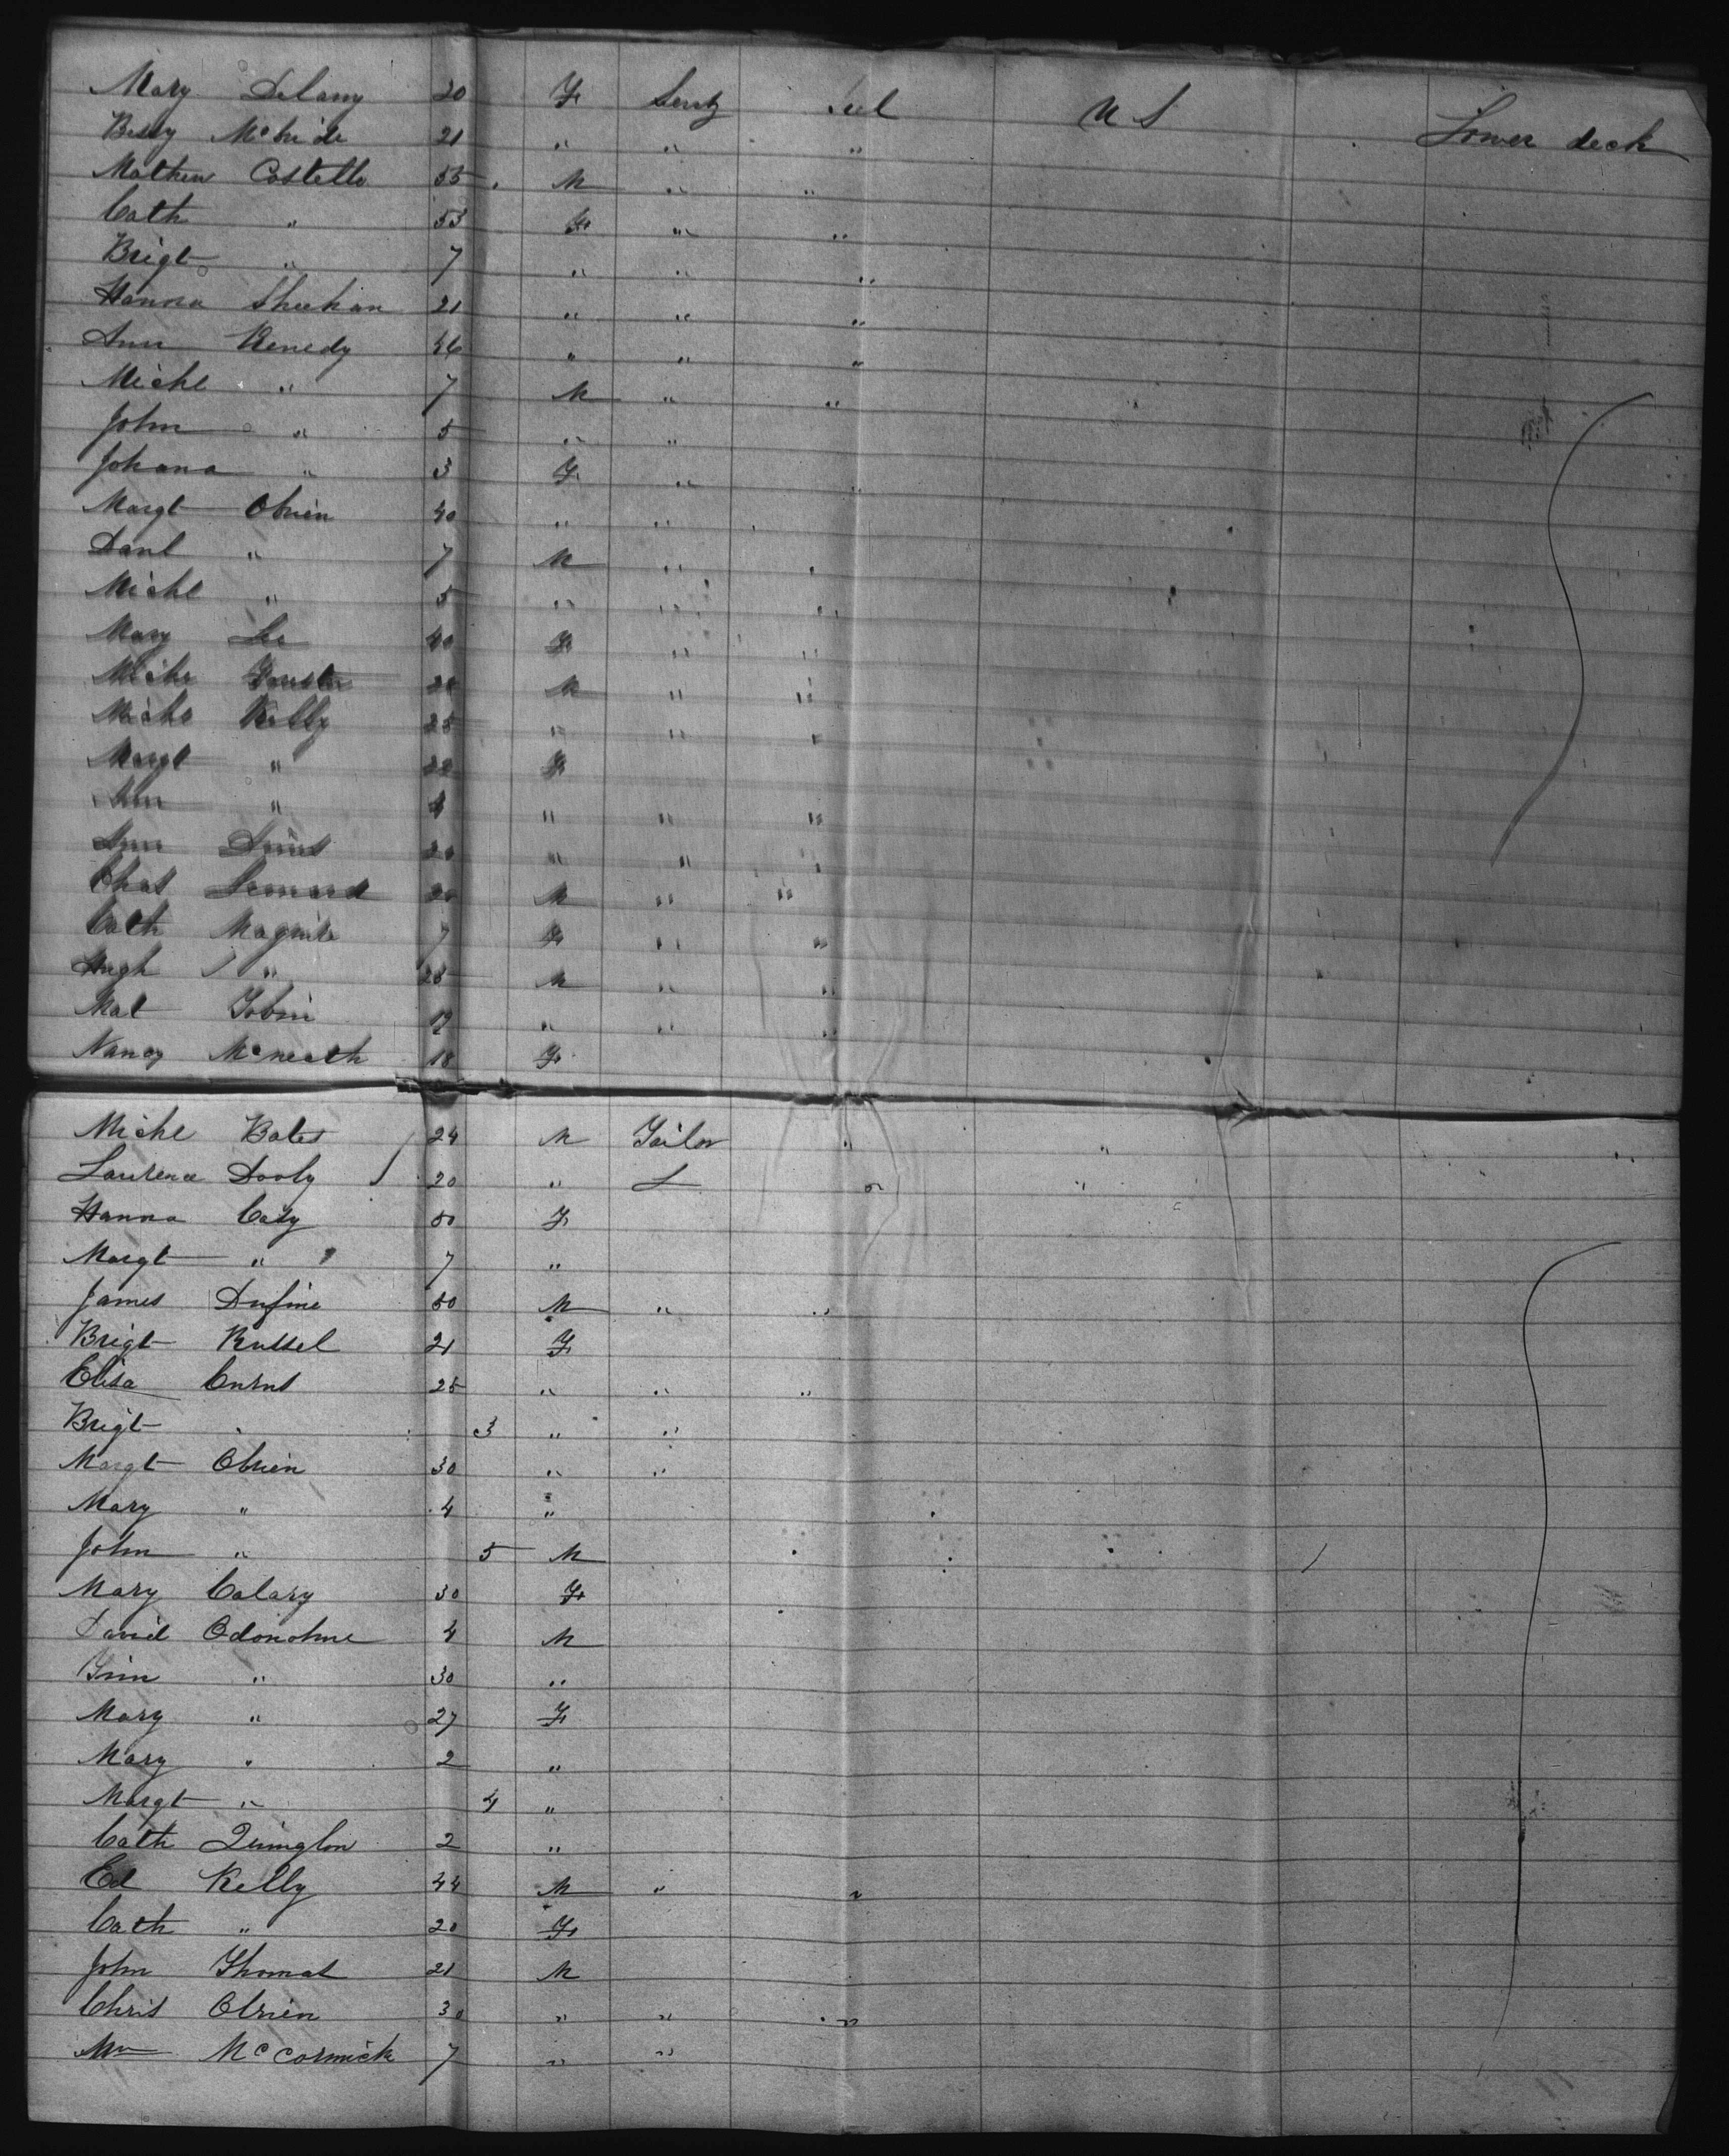 Mary Delany 20 F Servt Irel U S Lower deck
Bessy McBride 21 " " "
Mathew Costello 55 M " "
Cath " 53 F " "
Brigt " 7 " " "
Hanna Sheehan 21 " " "
Ann Kenedy 46 " " "
Michl " 7 M " "
John " 5 " "
Johana " 3 F " "
Margt Obrien 40 " "
Danl " 7 M "
Michl " 5 " " "
Mary Lee 40 F " "
Michl M " "
Michl Kelly 25 " " "
Margt " 22 F
Ann " " " "
Ann 20 " " "
Chas Leonard 20 M " "
Cath Maguire 7 F " "
Hugh " 25 M " "
Mat Tobin " " "
Nancy 18 F
Michl Bates 24 M Tailor " "
Laurence Dooly 20 " L " "
Hanna Casy 50 F
Margt " 7 "
James 50 M " "
Brigt Russel 21 F
Elisa Curns 25 " " "
Brigt " 3 " "
Margt Obrien 30 " "
Mary " 4 "
John " 5 M
Mary Calary 30 F
David Odonohue 4 M
" 30 "
Mary " 27 F
Mary " 2 "
Margt " 4 "
Cath 2 "
Ed Kelly 44 M " "
Cath " 20 F
John Thomas 21 M
Chris Obrien 30 " " "
Wm McCormick 7 " "